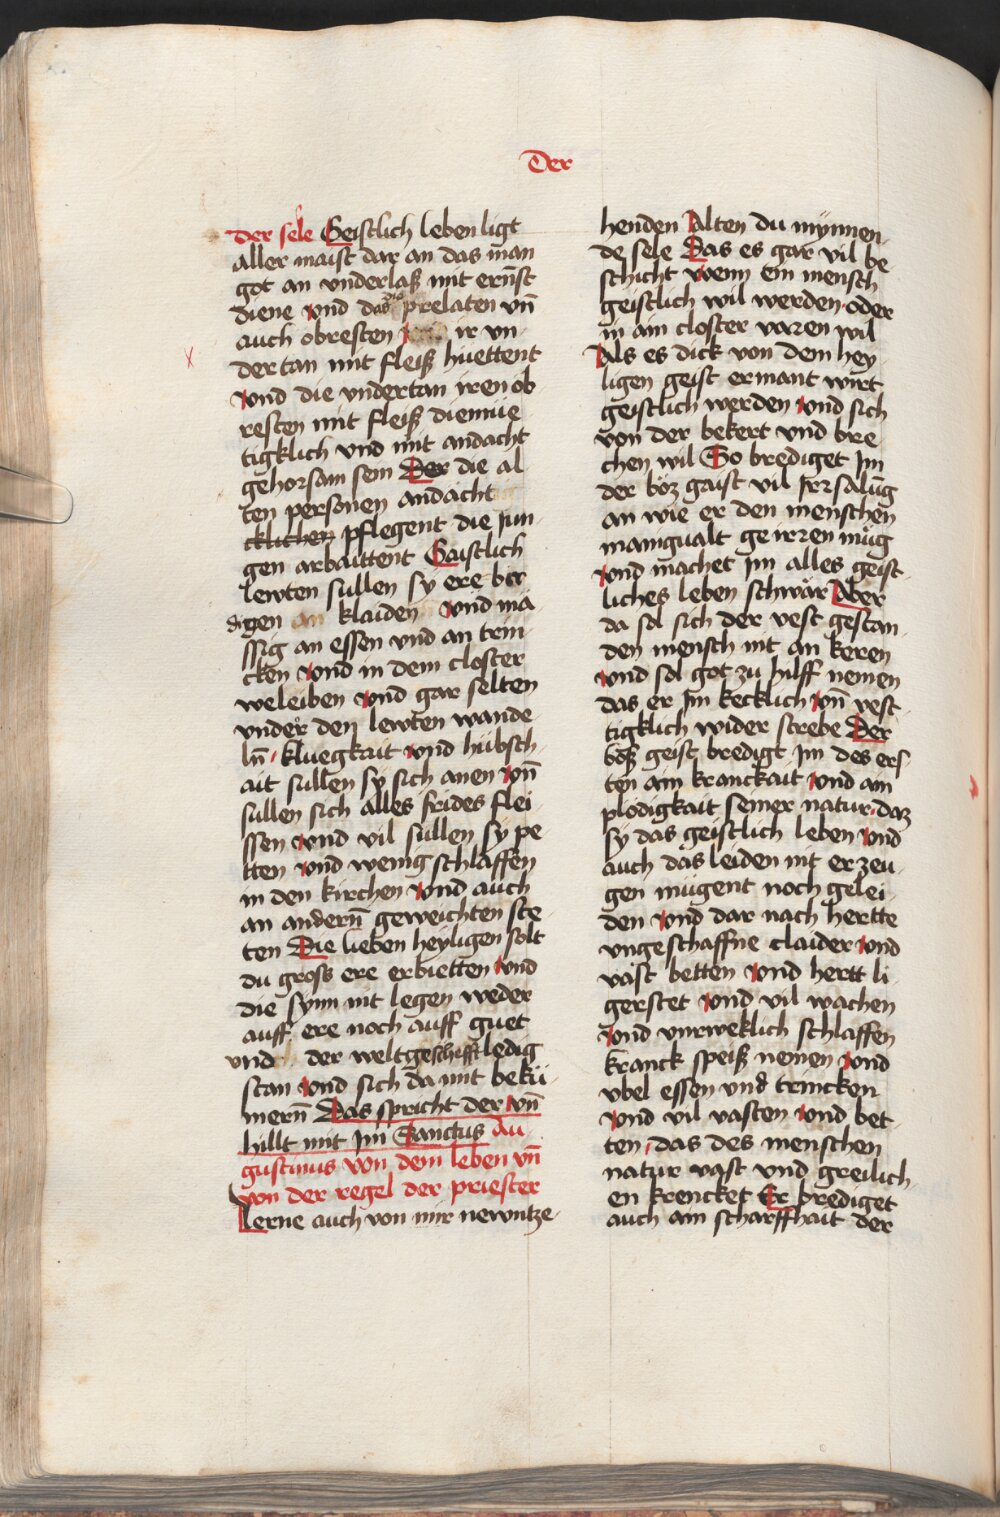 Der
der sele Geistlich leben ligt
aller maist dar an das man
got an vnderlaß mit ernst̄
diene vnd das die prelaten vn̄
auch obresten ir vn-
dertan mit fleiß huettent
vnd die vndertan iren ob
resten mit fleiß diemüe
tigklich vnd mit andacht
gehorsam sein Der die al
ten personen andacht
cklichen pflegent die jun-
gen arbaittent Gaistlich
lewten sullen sy ere bir
digen an klaiden vnd mä
ssig an essen vnd an trin-
cken vnd in dem closter
weleiben vnd gar selten
vnder den lewten wande
ln̄ kluegkait vnd hübsch-
ait sullen sy sich anen vn̄
sullen sich alles frides flei
ssen vnd vil sullen sy pe
tten vnd wenig schlaffen
in den kirchen vnd auch
an andern̄ geweichten ste
ten Die lieben heyligen solt
du gross ere erbietten vnd
die synn nit legen weder
auff ere noch auff guet
vnd der welt geschifft ledig
stan vnd sich da mit bekü-
mern̄ Das spricht der vn̄
hillt mit jm Sanctus Au-
gustinus von dem leben vn̄
von der regel der priester
Lerne auch von mir newntze-
henden Alten du mynnen-
de sele Das es gar vil be
schicht wenn ein mensch
geistlich wil werden oder
in ain closter varen wil
Als es dick von dem hey
ligen geist ermant wirt
geistlich werden vnd sich
von der bekert vnd bre
chen wil So brediget jm
der böz gaist vil jrrsalūg
an wie er den menschen
manigualt ge irren müg
vnd machet jm alles geist-
liches leben schwär Aber
da sol sich der vest gestan-
den mensch nit an keren
vnd sol got zu hilff nemen
das er jm kecklich vn̄ vest-
tigklich wider strebe Der
böß geist bredigt jm des ers-
ten am kranckait vnd am
plödigkait seiner natur daz
sy das geistlich leben vnd
auch das leiden nit erzeu-
gen mügent noch gelei-
den vnd dar nach hertte
vngeschaffne claider vnd
väst betten vnd hertt li-
gerstet vnd vil wachen
vnd vnrweklich schlaffen
kranck speiß nemen vnd
vbel essen vnd trincken
vnd vil vasten vnd bet-
ten das des menschen
natur vast vnd greilich-
en krencket Er brediget
auch am scharffhait der